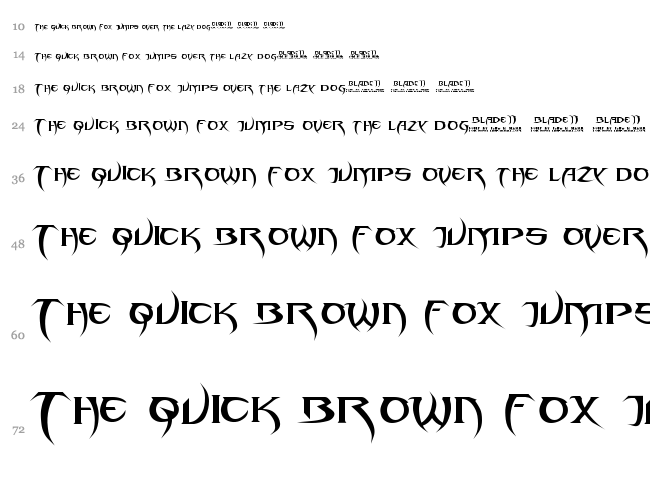 10 The quick brown fox jumps over the lazy dog BLADE II BLADE II BLADE II
14 The quick brown fox jumps over the lazy dog BLADE II BLADE II BLADE II
18 The quick brown fox jumps over the lazy dog BLADE II BLADE II BLADE II
24 The quick brown fox jumps over the lazy dog BLADE II BLADE II BLADE II
36 The quick brown fox jumps over the lazy do
48 The quick brown fox jumps over
60 The quick brown fox jumps
72 The quick brown fox j